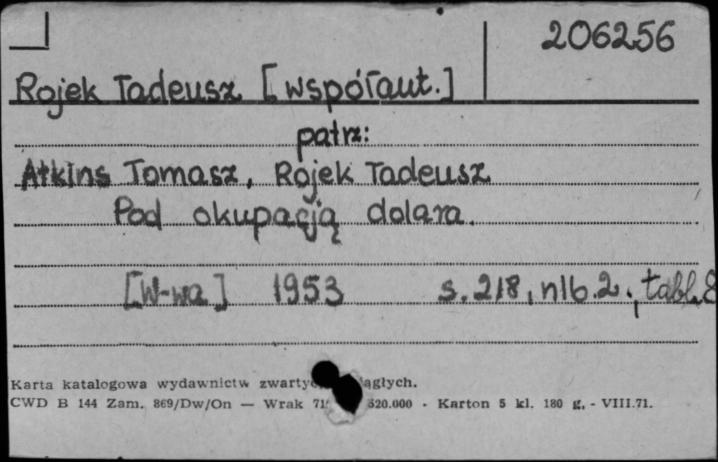 206256
Rojek Tadeusz [współaut.]
patrz:
Atkins Tomasz, Rojek Tadeusz
Pod okupacją dolara.
[W-wa] 1953 s. 218, nlb. 2., tabl. 8
Karta katalogowa wydawnictw
CWD B 144 Zam. 869/Dw/On — Wrak 520.000 - Karton 5 kl. 180 g. - VIII.71.